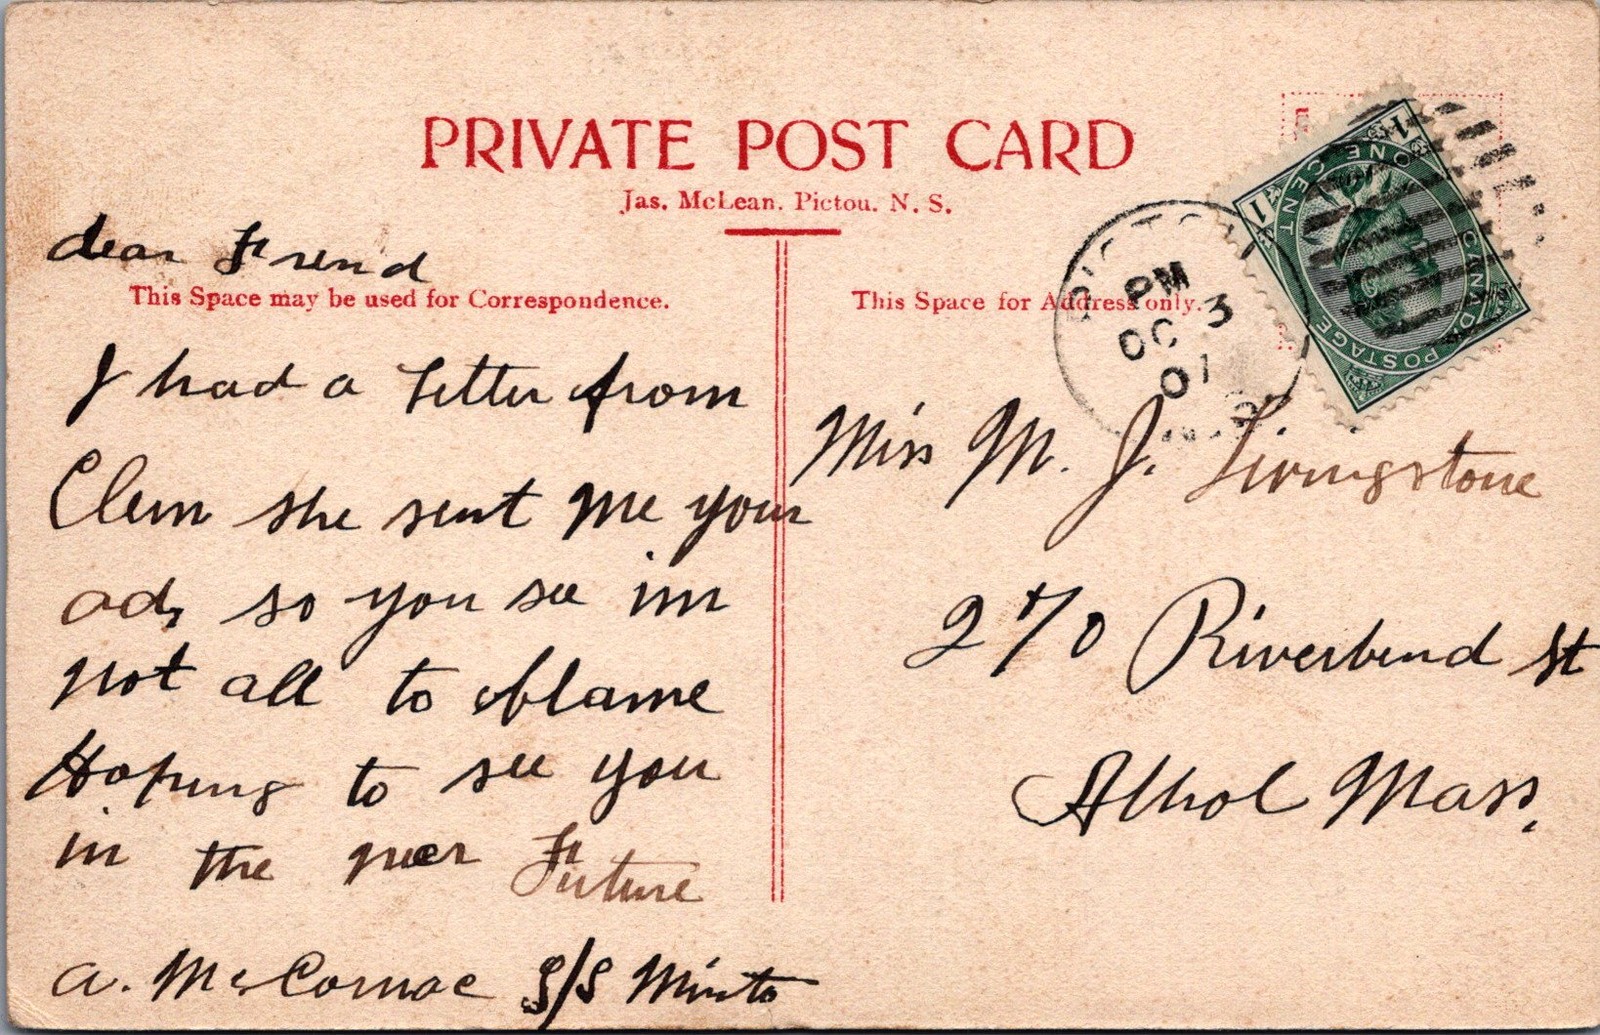 PRIVATE POST CARD
Jas. McLean. Pictou. N. S.
dear Friend
This Space may be used for Correspondence.
I had a letter from
Clem she sent me your
ad, so you see im
not all to blame
Hoping to see you
in the neer Future
A. McCormac S/S Minto
This Space for Address only.
PICTOU
PM
OC 3
07
CANADA POSTAGE
ONE CENT
1
1
Miss M. J. Livingstone
270 Riverbend St
Athol Mass.